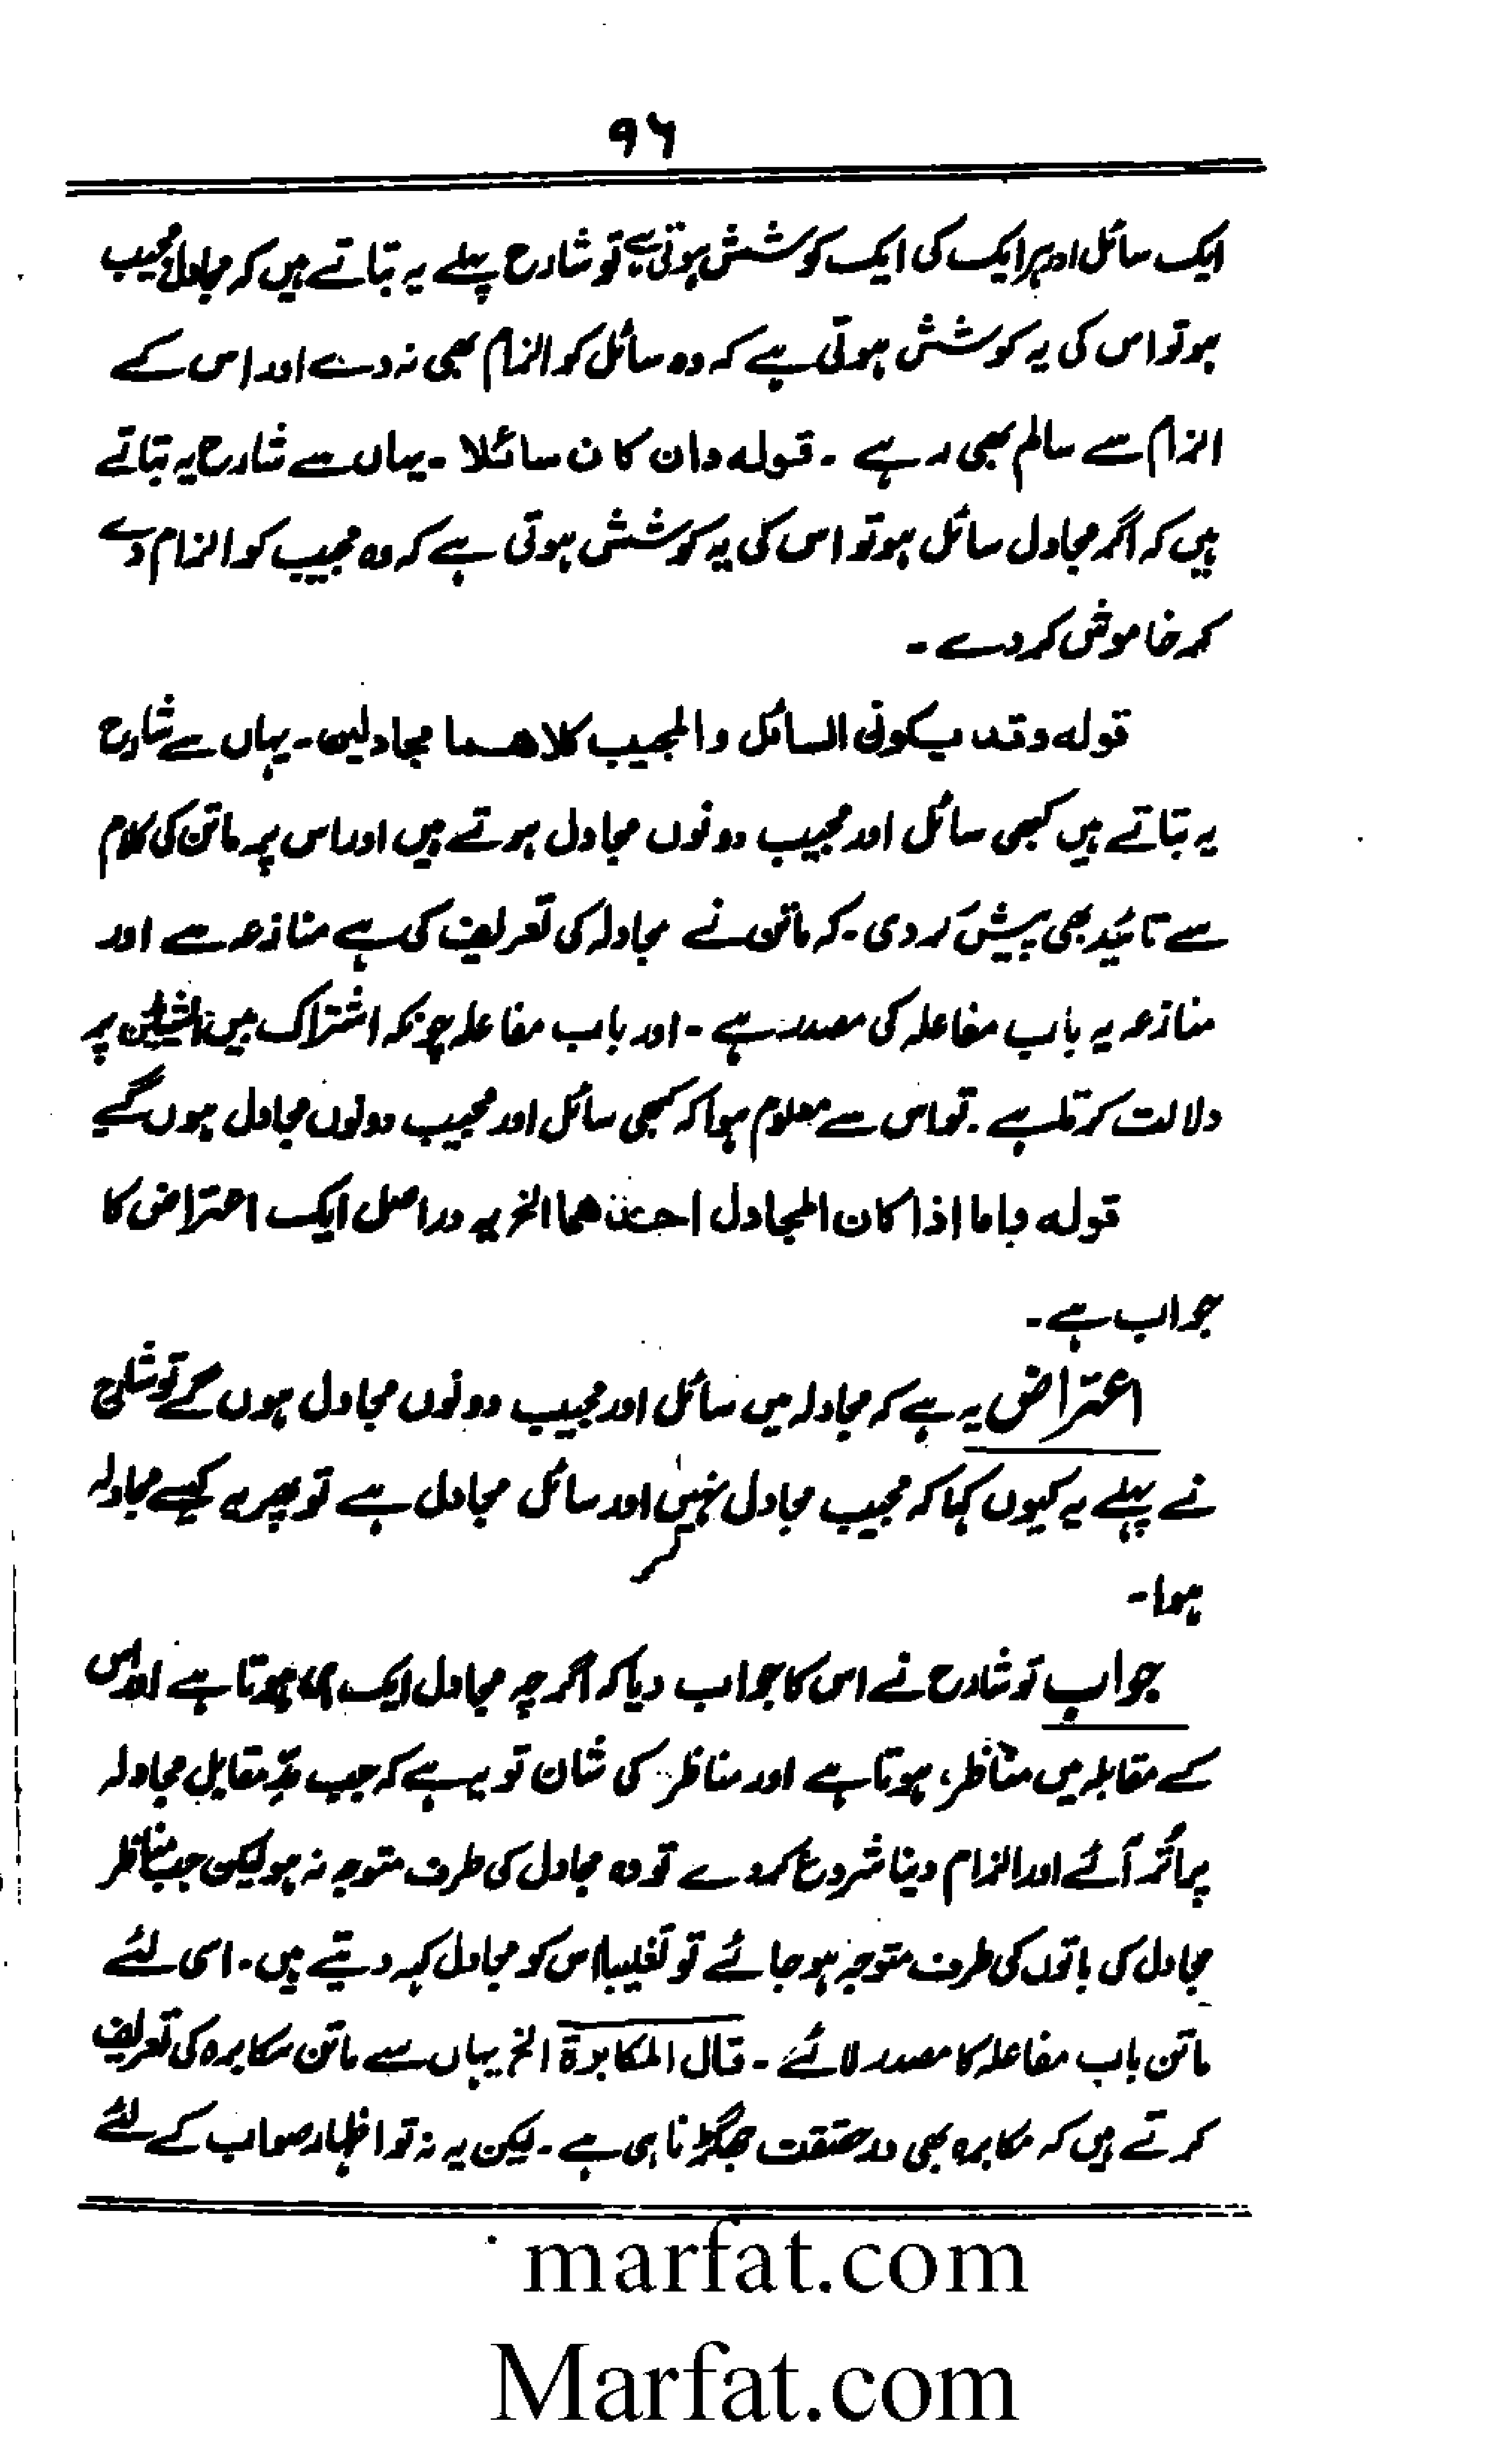 ۹۶
ایک سائل اور ہر ایک کی ایک کوشش ہوتی ہے تو شارح پہلے یہ بتاتے ہیں کہ مجادل مجیب
ہو تو اس کی یہ کوشش ہوتی ہے کہ وہ سائل کو الزام بھی نہ دے اور اس کے
الزام سے سالم بھی رہے ۔ قولہ وان کان سائلا ۔ یہاں سے شارح یہ بتاتے
ہیں کہ اگر مجادل سائل ہو تو اس کی یہ کوشش ہوتی ہے کہ وہ مجیب کو الزام دے
کر خاموش کر دے ۔
قولہ وقد یکون السائل والمجیب کلاھما مجادلین ۔ یہاں سے شارح
یہ بتاتے ہیں کبھی سائل اور مجیب دونوں مجادل ہوتے ہیں اور اس پر ماتن کی کلام
سے تائید بھی پیش کر دی ۔ کہ ماتن نے مجادلہ کی تعریف کی ہے منازعہ سے اور
منازعہ یہ باب مفاعلہ کی مصدر ہے ۔ اور باب مفاعلہ چونکہ اشتراک بین الشیئین پر
دلالت کرتا ہے ۔ تو اس سے معلوم ہوا کہ کبھی سائل اور مجیب دونوں مجادل ہوں گے
قولہ واما اذا کان المجادل احدھما الخ یہ دراصل ایک اعتراض کا
جواب ہے ۔
اعتراض یہ ہے کہ مجادلہ میں سائل اور مجیب دونوں مجادل ہوں گے تو شارح
نے پہلے یہ کیوں کہا کہ مجیب مجادل نہیں اور سائل مجادل ہے تو پھر یہ کیسے مجادلہ
ہوا ۔
جواب تو شارح نے اس کا جواب دیا کہ اگرچہ مجادل ایک ہی ہوتا ہے اور اس
کے مقابلہ میں مناظر، ہوتا ہے اور مناظر کی شان تو یہ ہے کہ جب مدِّ مقابل مجادلہ
پر اُتر آئے اور الزام دینا شروع کر دے تو وہ مجادل کی طرف متوجہ نہ ہو لیکن جب مناظر
مجادل کی باتوں کی طرف متوجہ ہو جائے تو تغلیبا اس کو مجادل کہہ دیتے ہیں ۔ اسی لئے
ماتن باب مفاعلہ کا مصدر لائے ۔ قال المکابرۃ الخ یہاں سے ماتن مکابرہ کی تعریف
کرتے ہیں کہ مکابرہ بھی درحقیقت جھگڑنا ہی ہے ۔ لیکن یہ نہ تو اظہار صواب کے لئے
marfat.com
Marfat.com